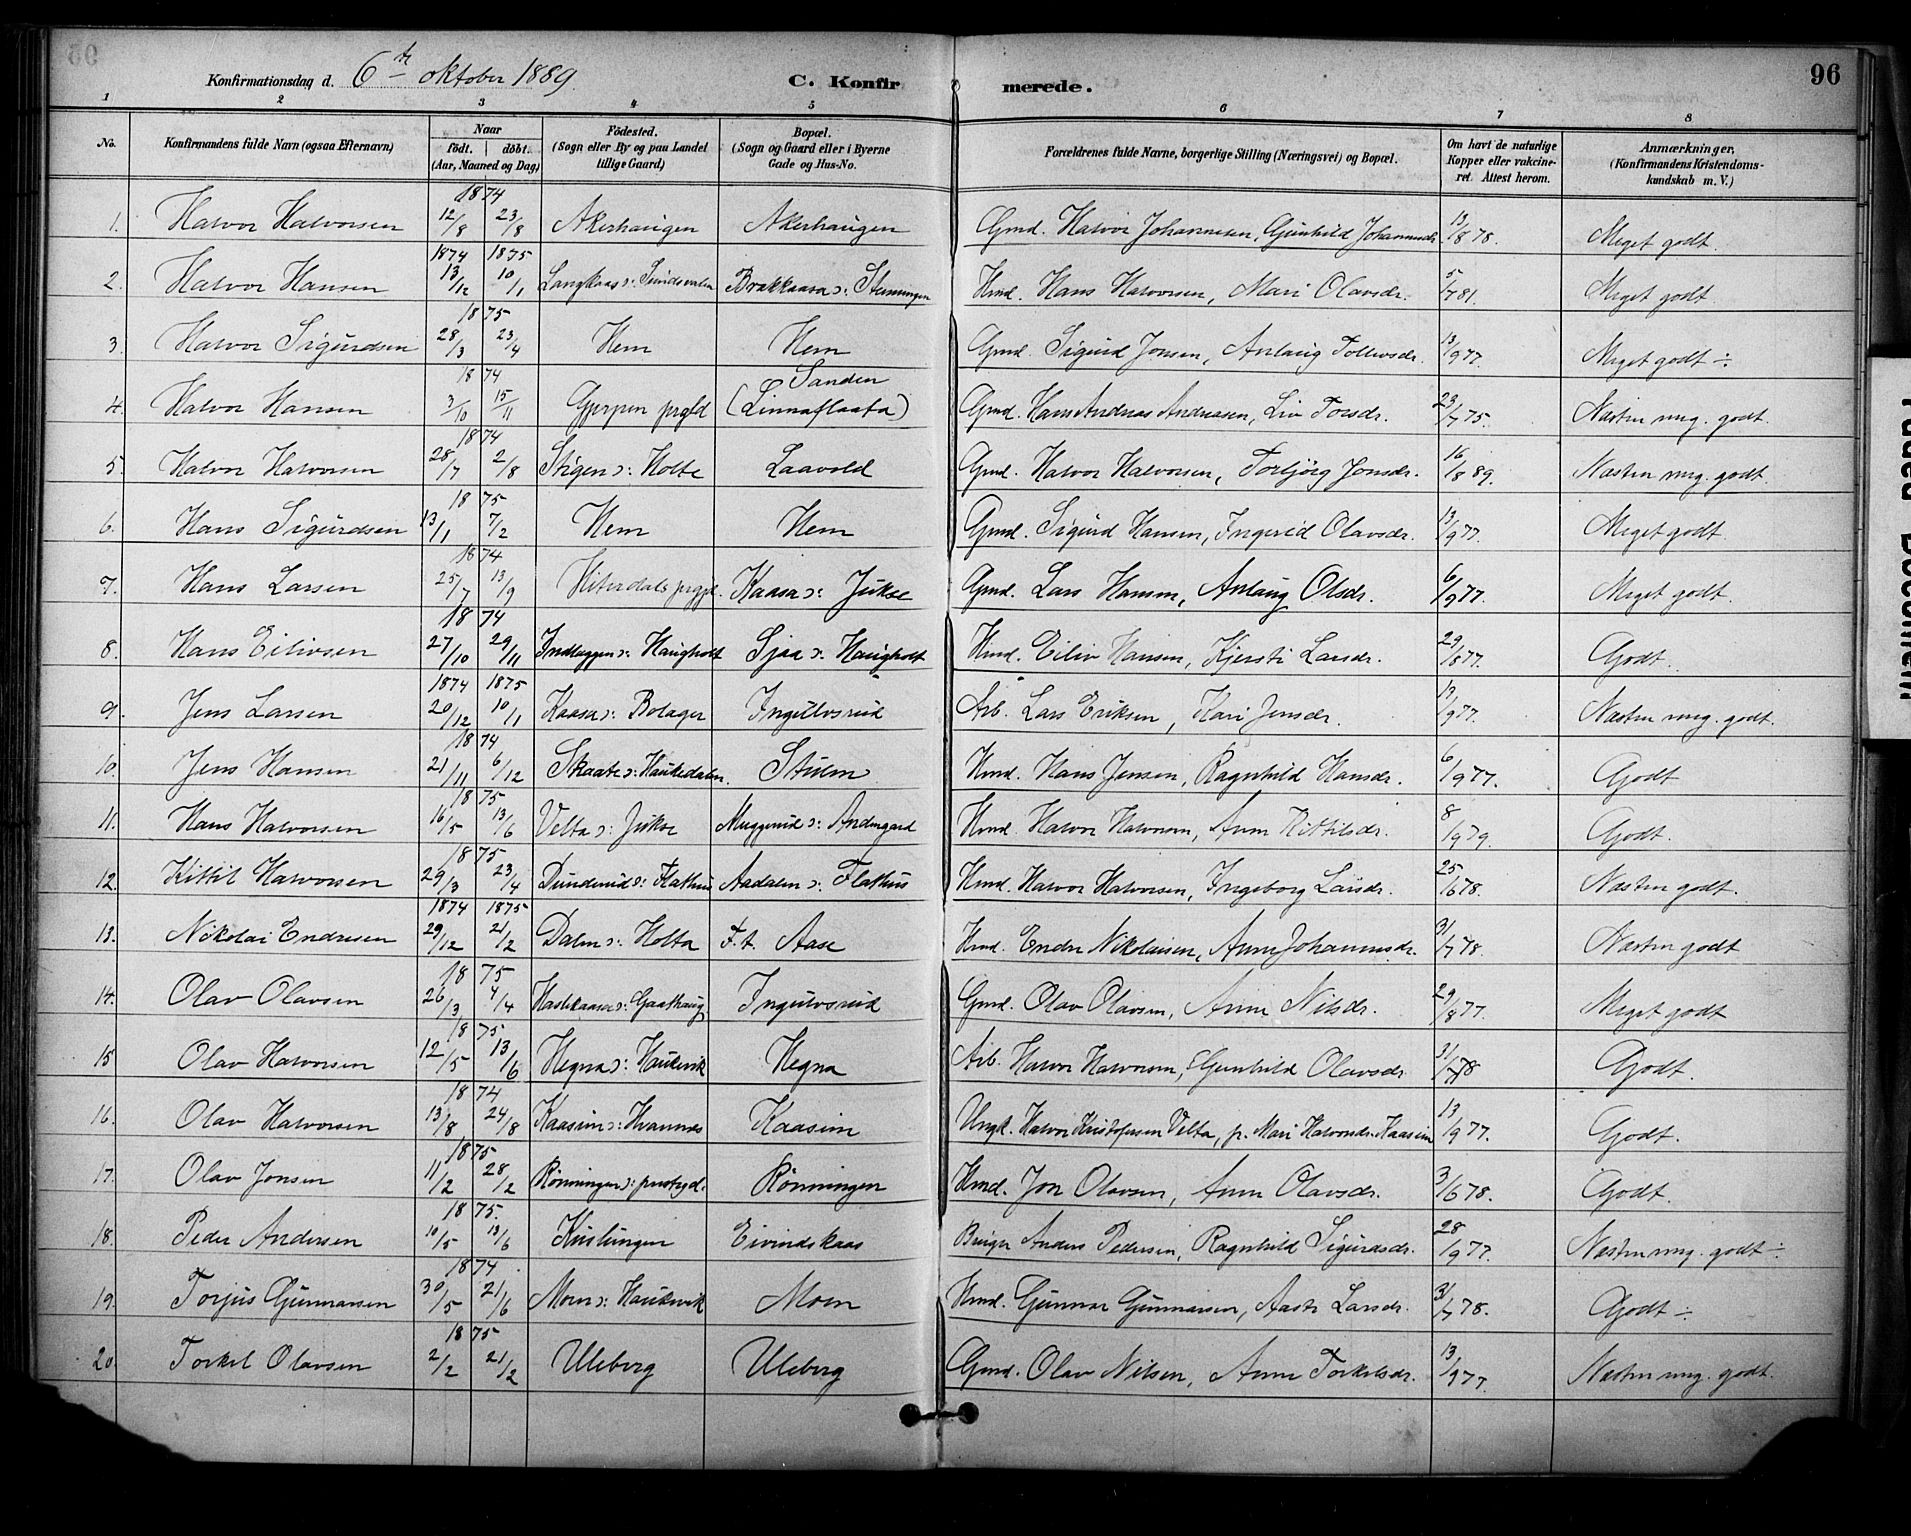 Konfirmationsdag d. 6te oktober 1889. C. Konfirmerede. 96
1 2 3 4 5 6 7 8
No. | Konfirmandens fulde Navn (ogsaa Efternavn) | Naar födt. döbt. (Aar, Maaned og Dag) | Födested. (Sogn eller By og paa Landet tillige Gaard) | Bopæl. (Sogn og Gaard eller i Byerne Gade og Hus-No. | Forældrenes fulde Navne, borgerlige Stilling (Næringsvei) og Bopæl. | Om havt de naturlige Kopper eller vakcineret. Attest herom. | Anmærkninger, (Konfirmandens Kristendomskundskab m. V.)
1. Halvor Halvorsen 1874 12/8 23/8 Akerhaugen Akerhaugen Gmd. Halvor Johannesen, Gunhild Johannesdr. 13/8 78. Meget godt.
2. Halvor Hansen 1874 13/12 1875 10/1 Langkaas ɔ: Brakkaasa ɔ: Hmd. Hans Halvorsen, Mari Olavsdr. 5/7 81. Meget godt
3. Halvor Sigurdsen 1875 28/3 23/4 Hem Hem Gmd. Sigurd Jonsen, Anlaug Tollevsdr. 13/9 77. Meget godt ÷
4. Halvor Hansen 1874 3/10 15/11 Gjerpen prgld Sanden (Linnaflaata) Gmd. Hans Andreas Andreasen, Liv Torsdr. 23/7 75. Næsten mg. godt.
5. Halvor Halvorsen 1874 28/7 2/8 Stigen ɔ: Holte Laavold Gmd. Halvor Halvorsen, Torbjörg Jonsdr. 16/8 89. Næsten mg. godt.
6. Hans Sigurdsen 1875 13/1 7/2 Hem Hem Gmd. Sigurd Hansen, Ingerid Olavsdr. 13/9 77. Meget godt
7. Hans Larsen 1874 25/7 13/9 Hiterdals prgjd. Kaasa ɔ: Jukse Gmd. Lars Hansen, Anlaug Olsdr. 6/9 77. Meget godt.
8. Hans Eilivsen 1874 27/10 29/11 Indlæggen ɔ: Haugholt Sjaa ɔ: Haugholt Hmd. Eiliv Hansen, Kjersti Larsdr. 29/8 77. Godt.
9. Jens Larsen 1874 20/12 1875 10/1 Kaasa ɔ: Bolager Ingulvsrud Arb. Lars Eriksen, Kari Jensdr. 13/9 77. Næsten mg. godt.
10. Jens Hansen 1874 21/11 6/12 Skaate ɔ: Haukedalen. Stulen Hmd. Hans Jensen, Ragnhild Hansdr. 6/9 77. Godt
11. Hans Halvorsen 1875 16/5 13/6 Velta ɔ: Jukse Muggerud ɔ: Andengard Hmd. Halvor Halvorsen, Anne Kittilsdr. 8/9 79. Godt.
12. Kittil Halvorsen 1875 29/3 23/4 Dunderud ɔ: Flathus Aadalen ɔ: Flathus Hmd. Halvor Halvorsen, Ingeborg Larsdr. 25/6 78. Næsten godt.
13. Nikolai Endresen 1874 29/12 1875 21/2 Dalen ɔ: Holta F. t. Aase Hmd. Endre Nikolaisen, Anne Johannesdr. 31/7 78. Næsten godt
14. Olav Olavsen 1875 26/3 4/4 Haslekaasa ɔ: Gaathaug Ingulvsrud Gmd. Olav Olavsen, Anne Nilsdr. 29/8 77. Meget godt
15 Olav Halvorsen 1875 12/5 13/6 Hegna ɔ: Haukvik Hegna Arb. Halvor Halvorsen, Gunhild Olavsdr. 31/7 78 Godt.
16. Olav Halvorsen 1874 13/8 24/8 Kaasim ɔ: Hvannes Kaasim Ungk. Halvor Kristofersen Velta, p. Mari Halvorsdr. Kaasim 13/9 77. Godt.
17. Olav Jonsen 1875 11/2 28/2 Rönningen ɔ: prestegd. Rönningen Hmd. Jon Olavsen, Anne Olavsdr. 3/6 78. Godt.
18. Peder Andersen 1875. 10/5 13/6 Eivindskaas Anders Pedersen, Ragnhild Sigurdsdr. 28/9 77. Næsten mg. godt ÷
19. Torjus Gunnarsen 1874. 30/5 21/6 Moen ɔ: Haukvik Moen Hmd. Gunnar Gunnarsen, Aaste Larsdr. 31/7 78. Godt ÷
20 Torkel Olavsen 1875 2/2 21/2 Uleberg Uleberg Gmd. Olav Nilsen, Anne Torkelsdr. 13/9 77. Næsten mg. godt.